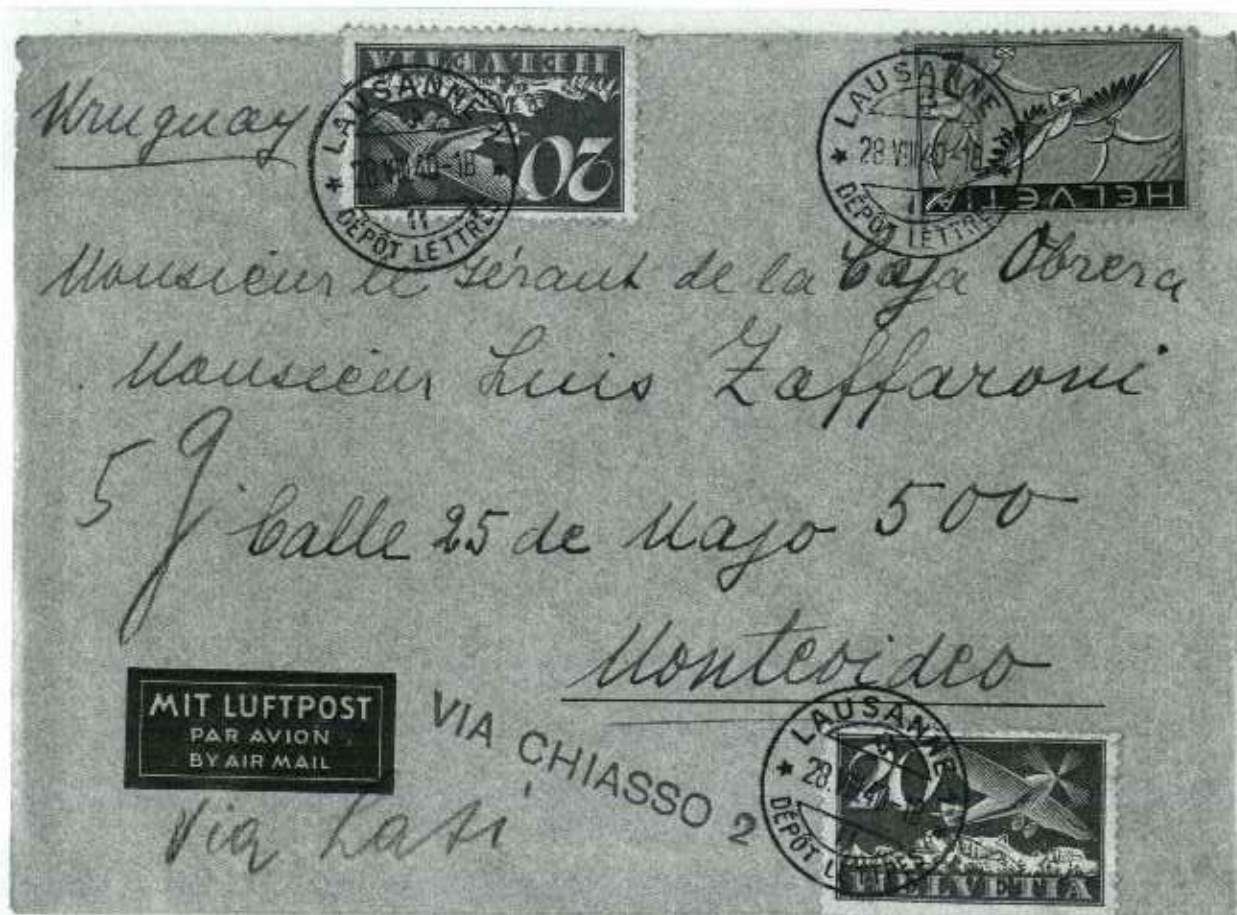 Uruguay
HELVETIA
20
LAUSANNE 1
28.VIII.40-18
11
DÉPÔT LETTRES
HELVETIA
LAUSANNE
28.VIII.40-18
DÉPÔT LETTRES
Monsieur le Gérant de la Caja Obrera
Monsieur Luis Zaffaroni
5 g Calle 25 de Mayo 500
Montevideo
MIT LUFTPOST
PAR AVION
BY AIR MAIL
VIA CHIASSO 2
Via Lati
LAUSANNE
20
DÉPÔT LETTRES
HELVETIA